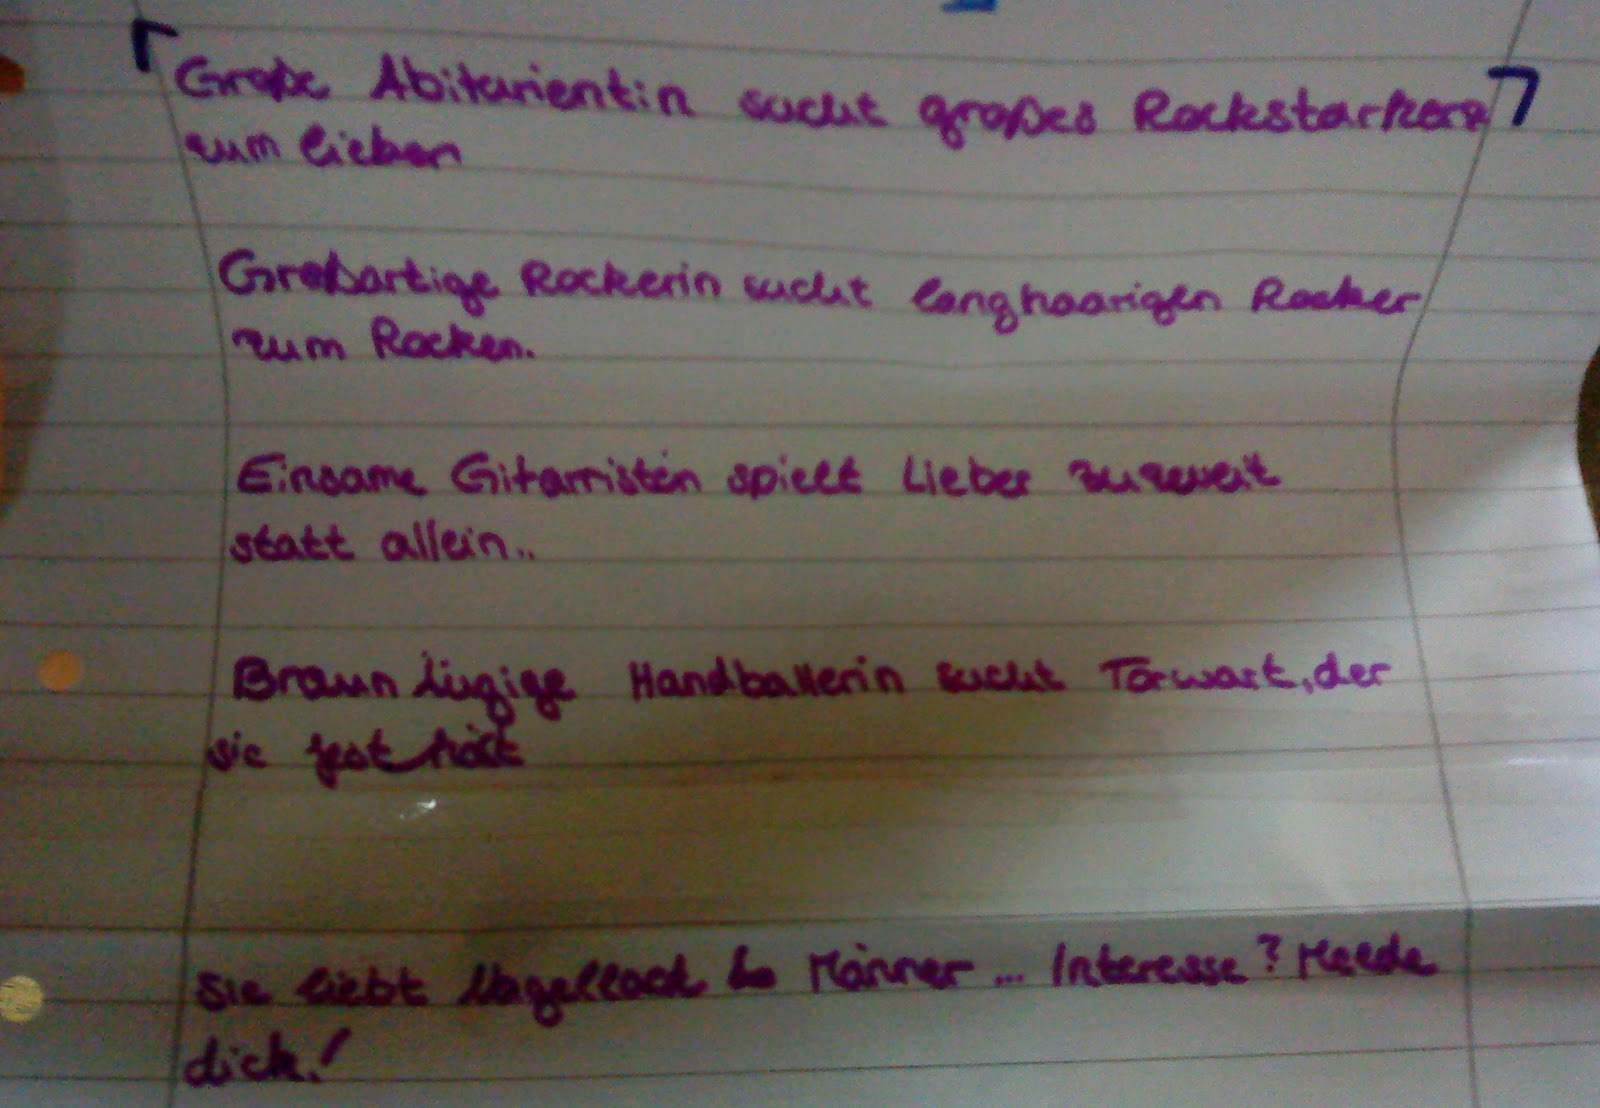 Große Abiturientin sucht großes Rockstarherz
zum lieben
Großartige Rockerin sucht langhaarigen Rocker
zum Rocken.
Einsame Gitarristin spielt Lieber zuzweit
statt allein..
Braun äugige Handballerin sucht Torwart, der
sie fest hält
Sie liebt Nagellack & Männer ... Interesse? Melde
dich!